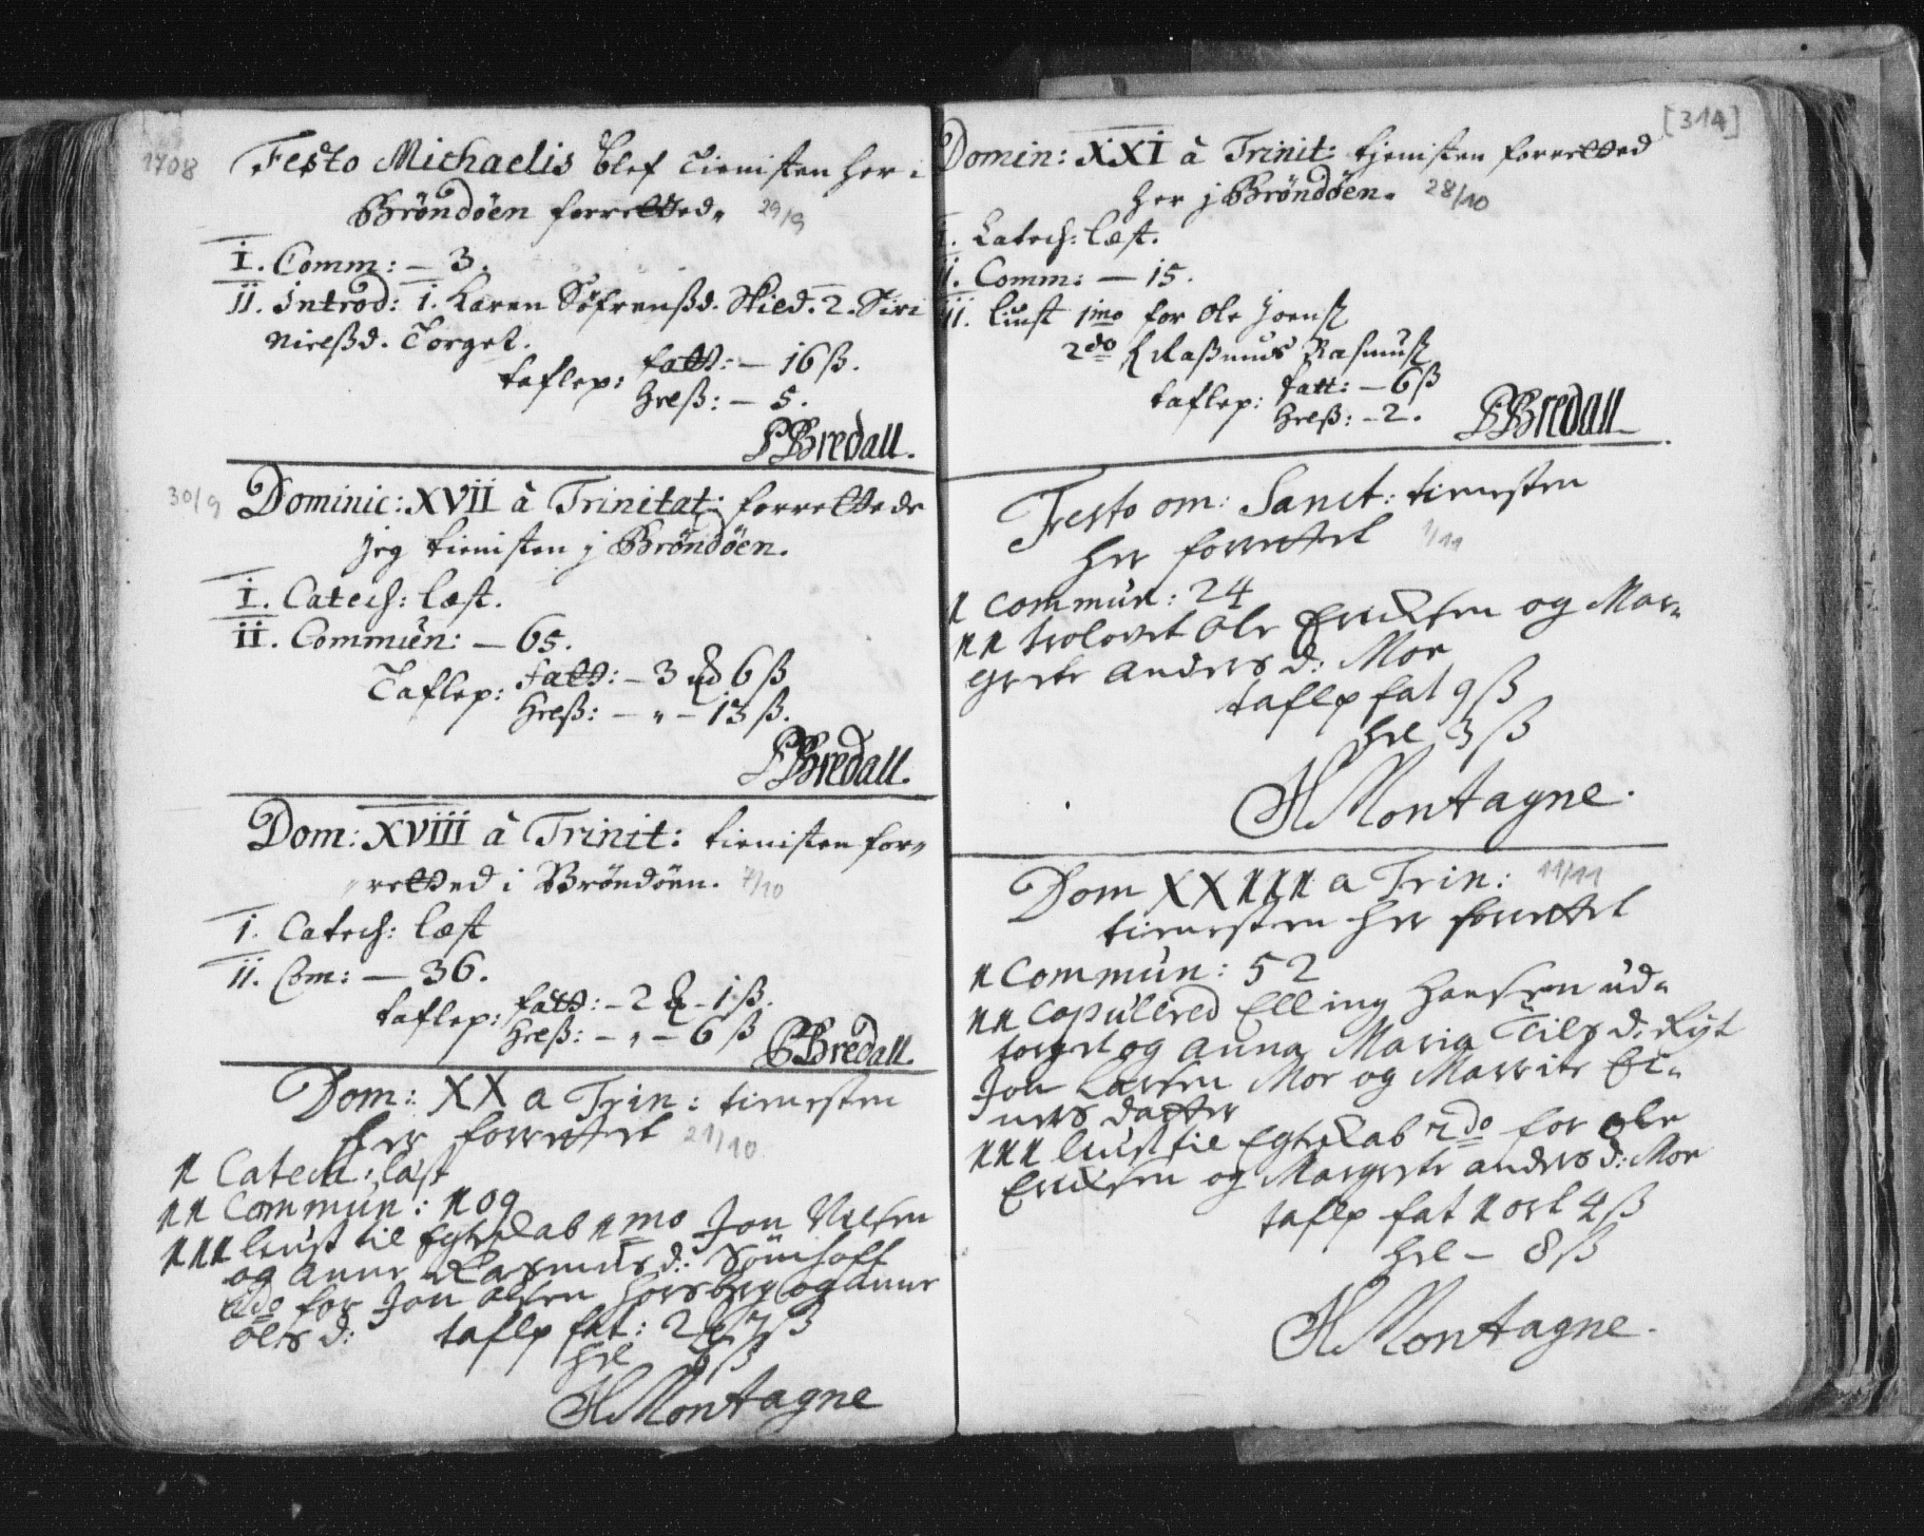 1708
Festo Michaelis blef Tienisten her i
Bröndöen forretted. 29/9
I. Comm: – 3.
II. Introd: 1. Karen Söfrensßd. Skied. 2. Siri
Nielßd. Torget.
taflep: fatt: – 16 ß.
Hreß: – 5.
PBredall.
30/9 Dominic: XVII à Trinitat: forrettede
jeg tienisten j Bröndöen.
I. Catech: læst.
II. Commun: – 65.
Taflep: fatt: – 3 6 ß
Hreß: – „ – 13 ß.
PBredall.
Dom: XVIII à Trinit: tienisten for„
retted i Bröndöen. 7/10
I. Catech: læst
II. Com: – 36.
taflep: fatt: – 2 – 1 ß.
Hreß: – „ – 6 ß
PBredall.
Dom: XX a Trin: tienesten
her forrettet 21/10
1 Catech: læst
11 Commun: 109
111 liust til Egteskab 1mo Jon Nilsen
og Anne Rasmus d:
2do for Jon Olsen Horsberg og Anne
Ols d: taflp fat: 2 7 ß
Hrl 6 ß
HMontagne
[314]
Domin: XXI à Trinit: tjenisten forretted
her j Bröndöen. 28/10
I. Catech: læst.
II. Comm: – 15.
II. liust 1mo for Ole Joenß
2do Raßmus Rasmuß
taflep: fatt: – 6 ß
Hreß: – 2.
PBredall
Festo om: Sanct: tienesten
her forrettet 1/11
1 Commun: 24
11 trolovet Ole Eriksen og Mar„
grete Anders d: Moe
taflp fat 9 ß
hrl 3 ß
HMontagne.
Dom XXIII a Trin: 11/11
tienesten her forrettet
1 Commun: 52
11 Copulered Elling Hansen ud„
torget og Anna Maria Nils d:
Jon Larsen Moe og Marrite Ei„
ners datter
111 liust til Egteskab 2do for Ole
Eriksen og Margrete Anders d: Moe
taflp fat 1 ort 4 ß
hrl – 8 ß
HMontagne.